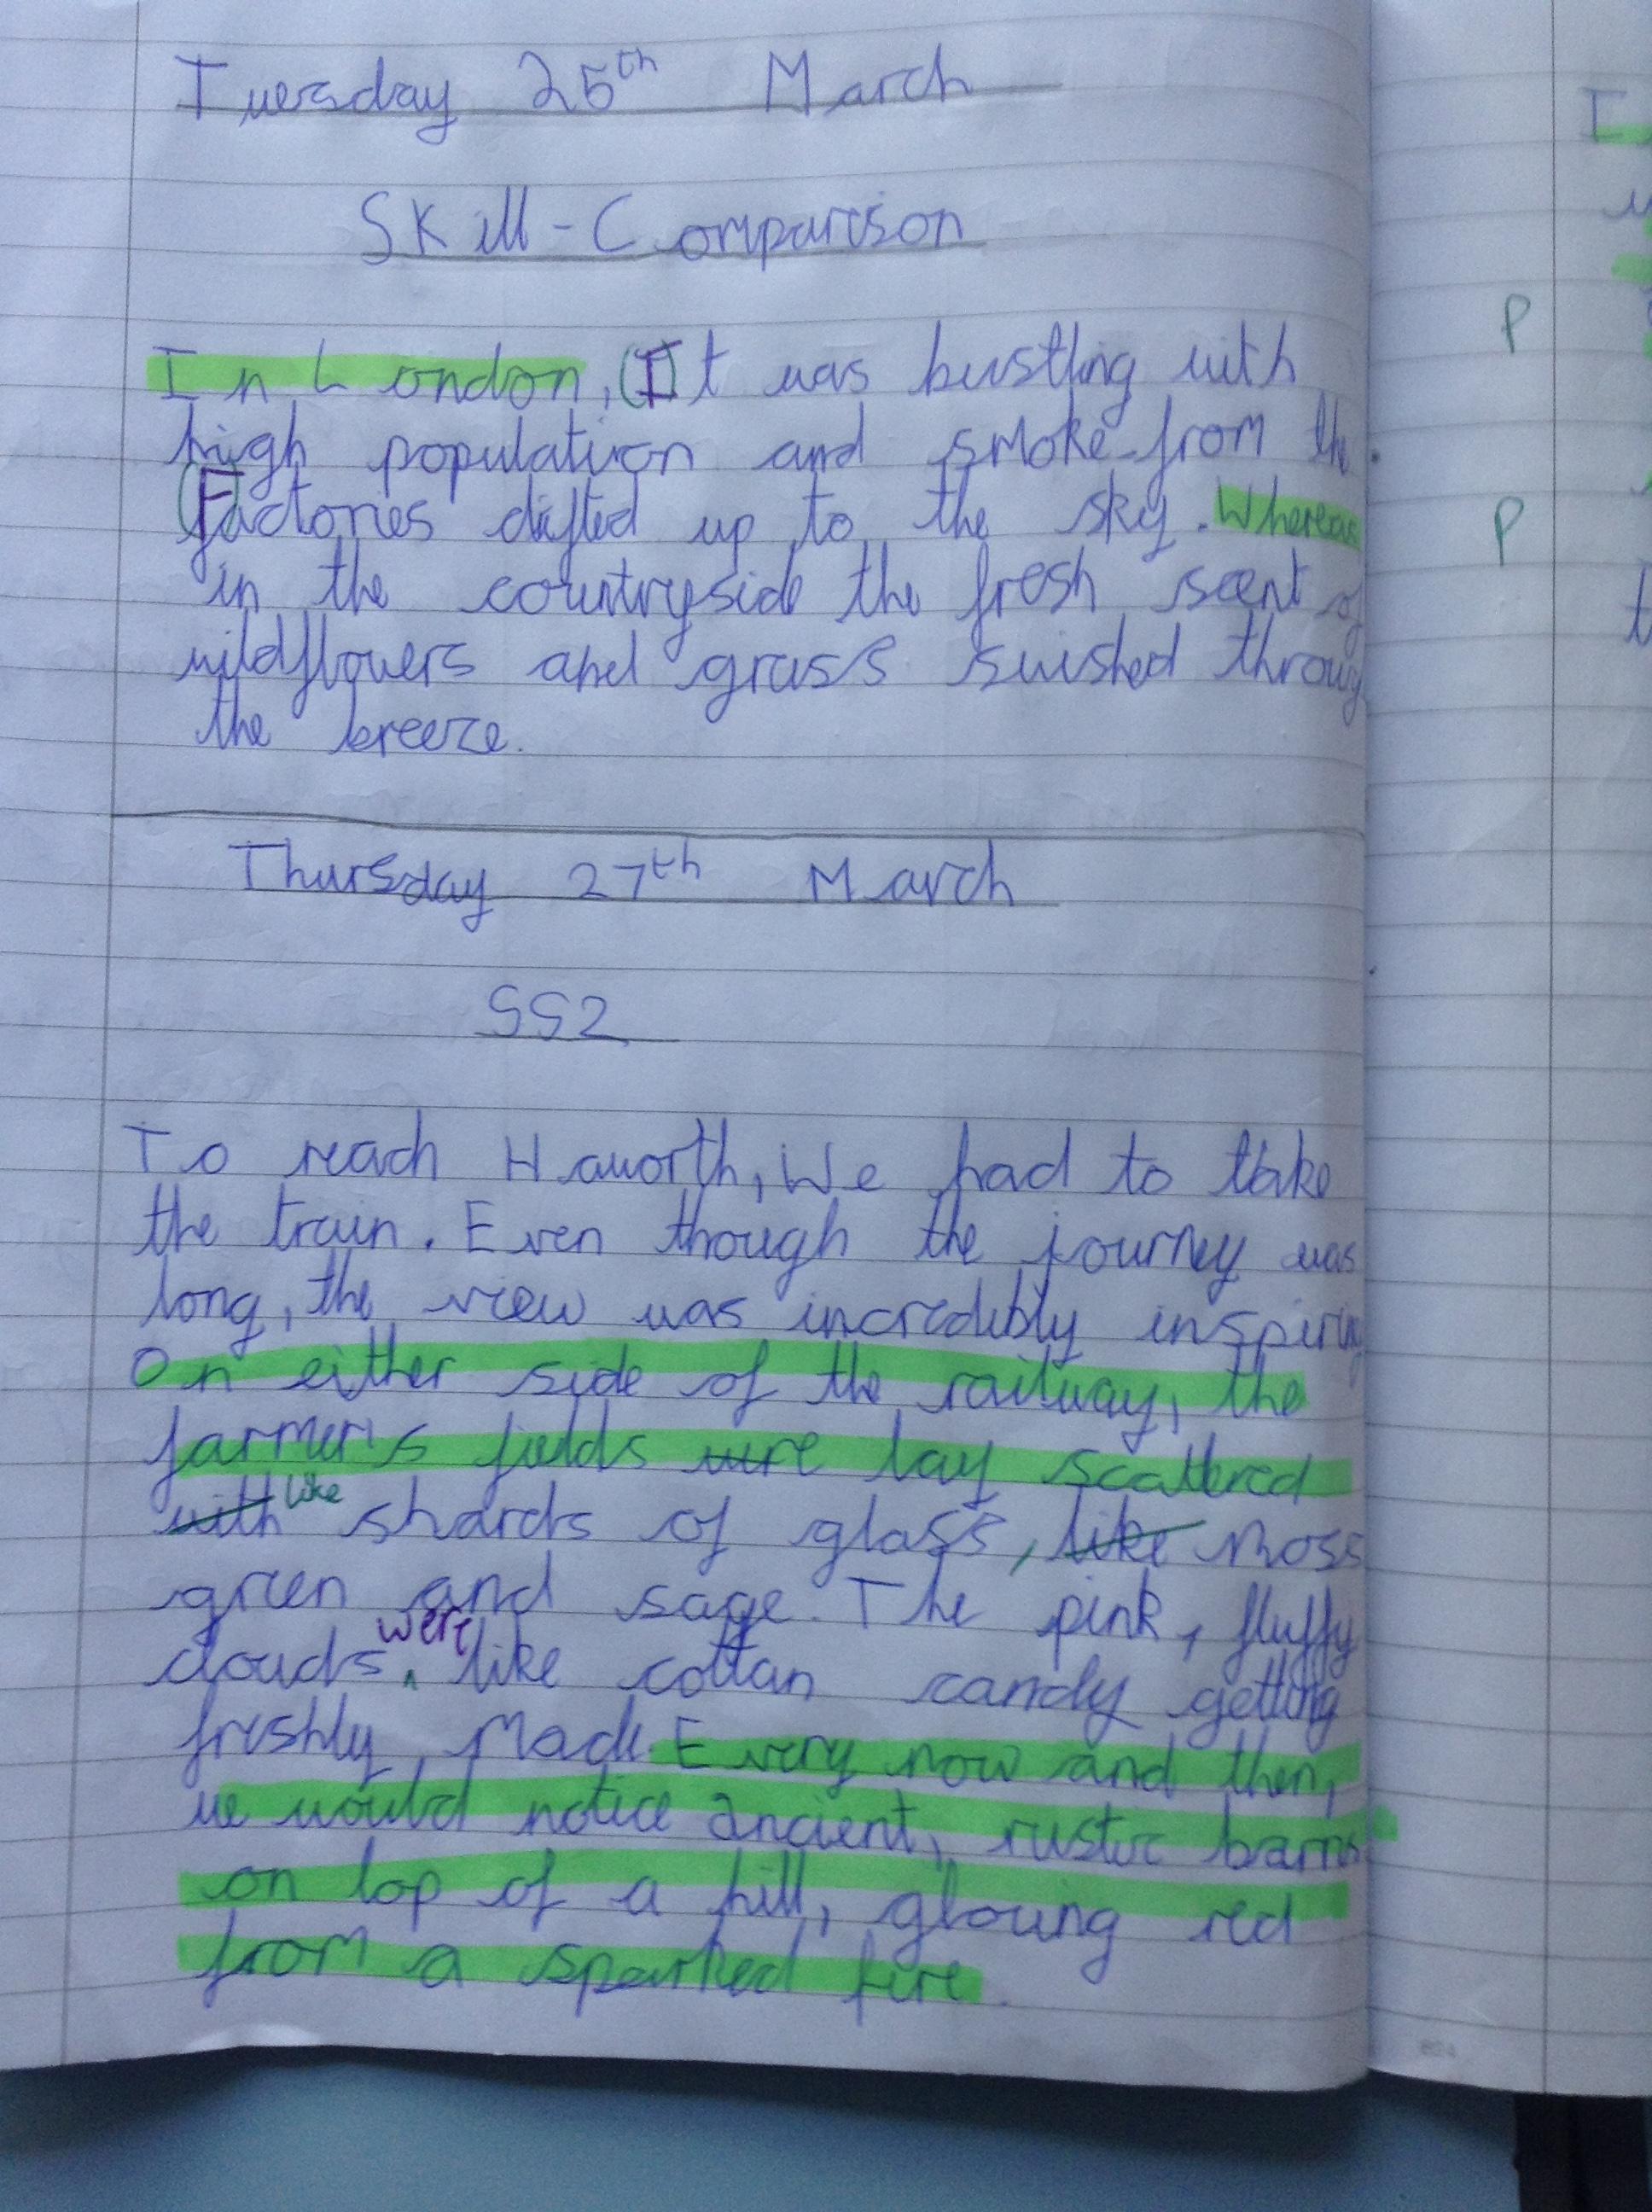 Tuesday 25th March
Skill - Comparison
In London, (I)t was bustling with
high population and smoke from the
(F)actories difted up to the sky. Whereas
in the countryside the fresh scent of
wildflowers and grass swished throug
the breeze.
Thursday 27th March
SS2
To reach Haworth, We had to take
the train. Even though the journey was
long, the view was incredibly inspiring
On either side of the railway, the
farmer's fields were lay scattered
with like shards of glass, like moss
green and sage. The pink, fluffy
clouds were like cottan candy getting
freshly made. Every now and then,
we would notice ancient, rustic barns
on top of a hill, glowing red
from a sparked fire.
P
P
I